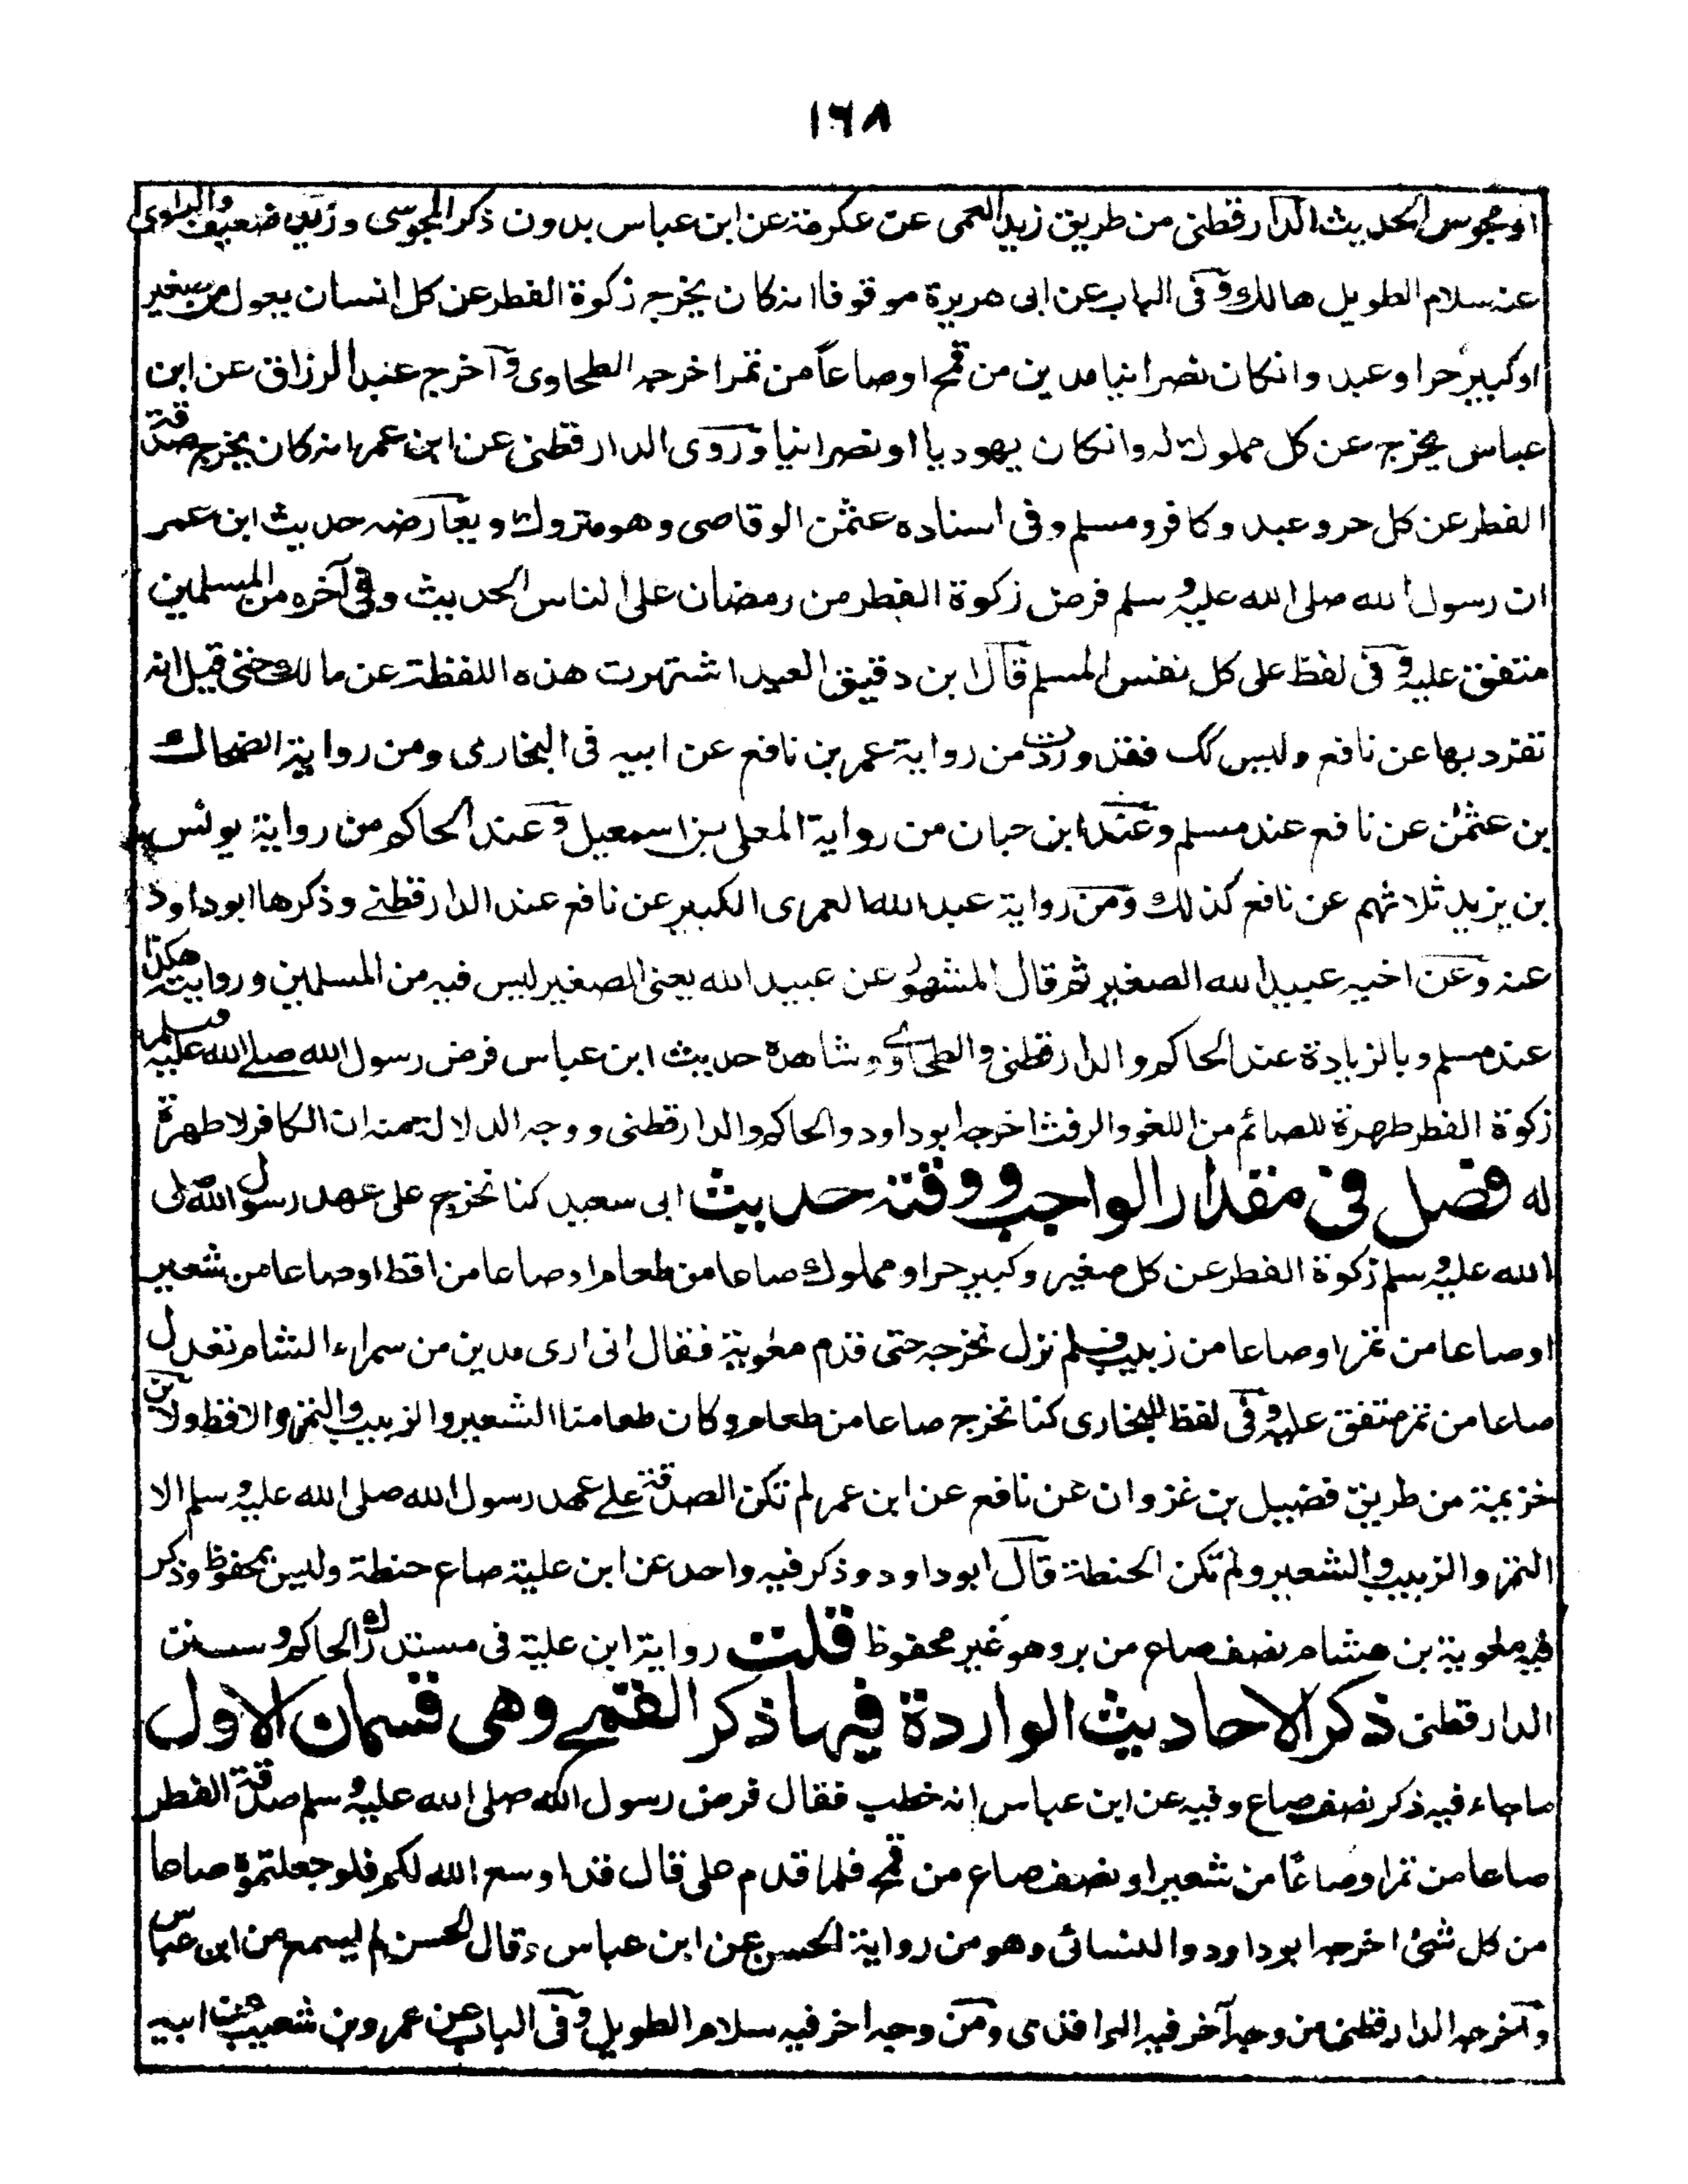 ١٦٨
او مجوس الحديث الدارقطنى من طريق زيد العمى عن عكرمة عن ابن عباس بدون ذكر المجوسى وزيد ضعيف والراوى
عنه سلام الطويل هالك وفى الباب عن ابى هريرة موقوفا انه كان يخرج زكوة الفطر عن كل انسان يعول من صغير
او كبير حر او عبد وانكان نصرانيا مدين من قمح او صاعاً من تمر اخرجه الطحاوى وآخرج عبد الرزاق عن ابن
عباس يخرج عن كل مملوك له وانكان يهوديا او نصرانيا وروى الدارقطنى عن ابن عمر انه كان يخرج صدقة
الفطر عن كل حر وعبد وكافر ومسلم وفى اسناده عثمٰن الوقاصى وهو متروك ويعارضه حديث ابن عمر
ان رسول الله صلى الله عليه وسلم فرض زكوة الفطر من رمضان على الناس الحديث وفى آخره من المسلمين
متفق عليه وفى لفظ على كل نفس المسلم قال ابن دقيق العيد اشتهرت هذه اللفظة عن مالك حتى قيل انه
تفرد بها عن نافع وليس كك فقد وردت من رواية عمر بن نافع عن ابيه فى البخارى ومن رواية الضحاك
بن عثمٰن عن نافع عند مسلم وعند ابن حبان من رواية المعلى بن اسمعيل وعند الحاكم من رواية يونس
بن يزيد ثلاثهم عن نافع كذلك ومن رواية عبد الله العمرى الكبير عن نافع عند الدارقطنے وذكرها ابوداود
عنه وعن اخيه عبيد الله الصغير ثم قال المشهور عن عبيد الله يعنى الصغير ليس فيه من المسلمين وروايته هكذا
عند مسلم وبالزيادة عند الحاكم والدارقطنى والطحاوے وشاهده حديث ابن عباس فرض رسول الله صلے الله عليه وسلم
زكوة الفطر طهرة للصائم من اللغو والرفث اخرجه ابوداود والحاكم والدارقطنى ووجه الدلالة منه ان الكافر لا طهرة
له فصل فى مقدار الواجب ووقته حديث ابى سعيد كنا نخرج على عهد رسول الله صلى
الله عليه وسلم زكوة الفطر عن كل صغير وكبير حر او مملوك صاعا من طعام او صاعا من اقط او صاعا من شعير
او صاعا من تمر او صاعا من زبيب فلم نزل نخرجه حتى قدم معٰوية فقال انى ارى مدين من سمراء الشام تعدل
صاعا من تمر متفق عليه وفى لفظ للبخارى كنا نخرج صاعا من طعام وكان طعامنا الشعير والزبيب والتمر والاقط ولابن
خزيمة من طريق فضيل بن غزوان عن نافع عن ابن عمر لم تكن الصدقة علے عهد رسول الله صلى الله عليه وسلم الا
التمر والزبيب والشعير ولم تكن الحنطة قال ابوداود وذكر فيه واحد عن ابن علية صاع حنطة وليس بمحفوظ وذكر
فيه معٰوية بن هشام نصف صاع من بر وهو غير محفوظ قلت رواية ابن علية فى مستدرك الحاكم وسنن
الدارقطنى ذكر الاحاديث الواردة فيها ذكر القمح وهى قسمان الاول
ماجاء فيه ذكر نصف صاع وفيه عن ابن عباس انه خطب فقال فرض رسول الله صلى الله عليه وسلم صدقة الفطر
صاعا من تمر او صاعًا من شعير او نصف صاع من قمح فلما قدم على قال قد اوسع الله لكم فلو جعلتموه صاعا
من كل شئ اخرجه ابوداود والنسائى وهو من رواية الحسن عن ابن عباس وقال الحسن لم يسمع من ابن عباس
وآخرجه الدارقطنى من وجه آخر فيه الواقدى ومن وجه اخر فيه سلام الطويل وفى الباب عن عمرو بن شعيب عن ابيه